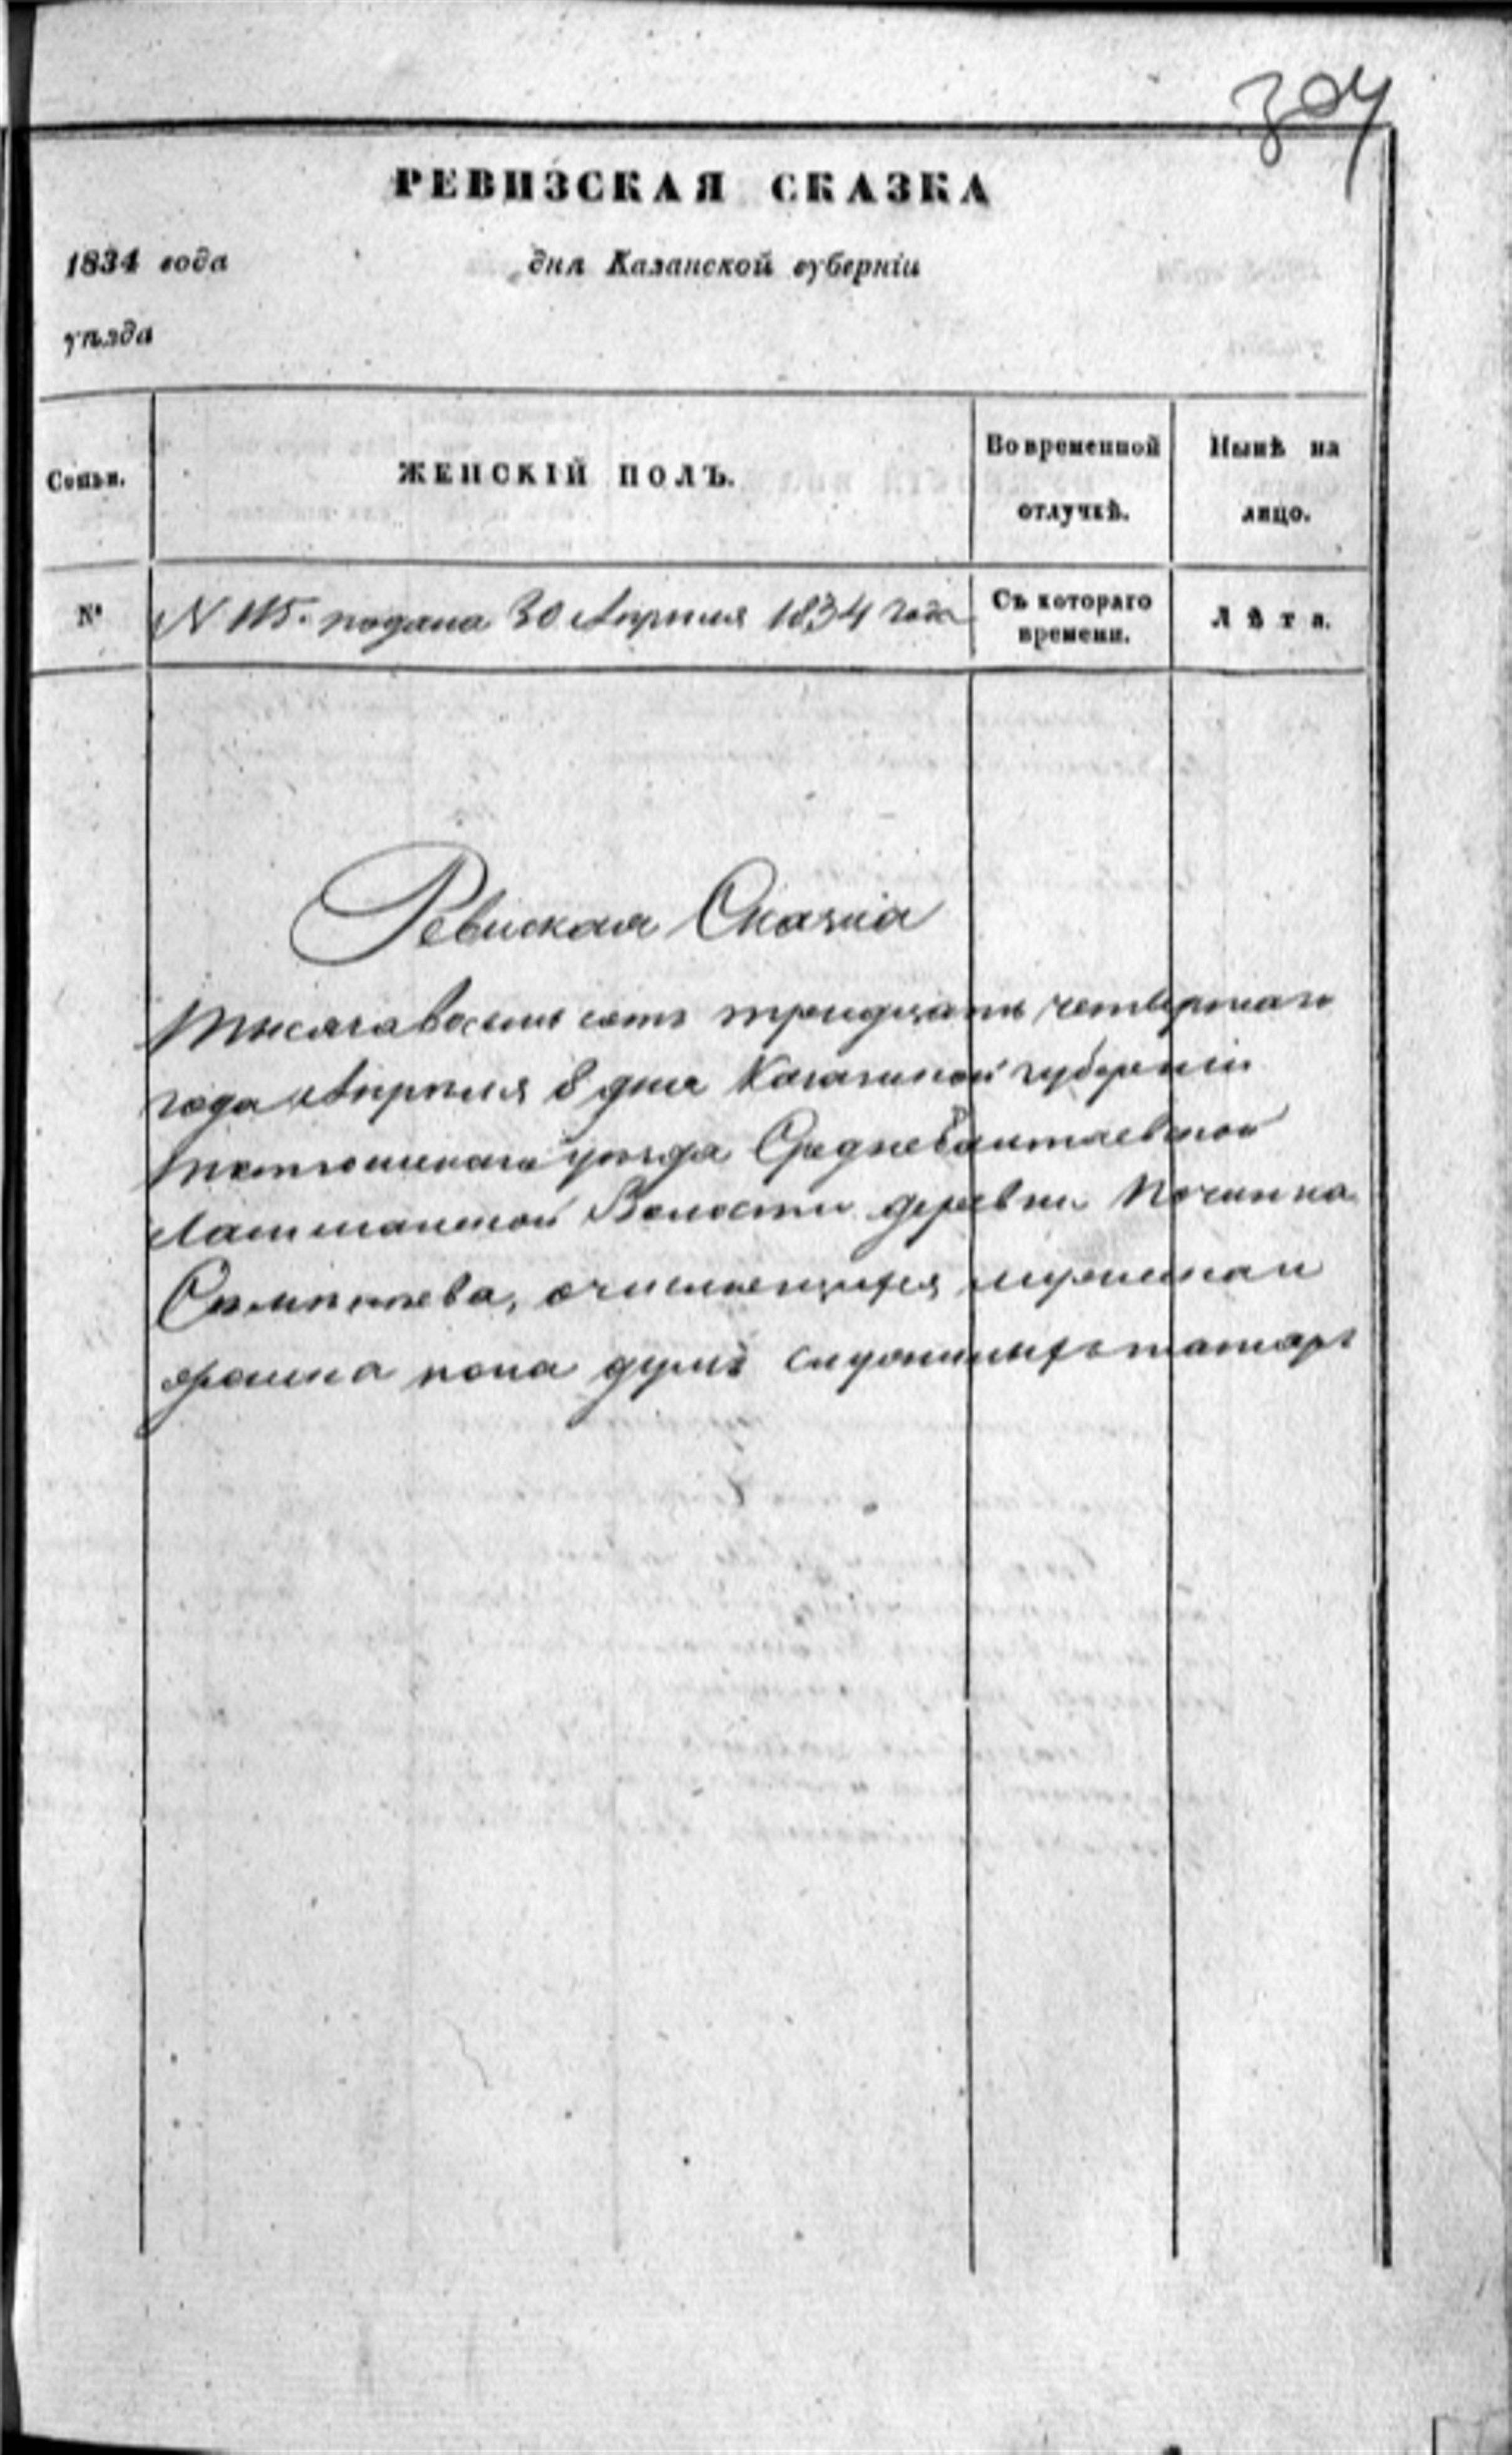 304
РЕВИЗСКАЯ СКАЗКА
1834 года дня Казанской губерніи
уѣзда
Семьи. ЖЕНСКІЙ ПОЛЪ. Во временной отлучкѣ. Нынѣ на лицо.
№ N 115. подана 30 Апреля 1834 года Съ котораго времени. Лѣта.
Ревиская Сказка
Тысяча восемь сотъ тридцать четвертаго
года Апреля 8 дня Казанской губерніи
Тетюшскаго уѣзда Среднебалтаевской
Лашманской Волости деревни Починка
мужеска и
женска пола душъ служилыхъ татаръ